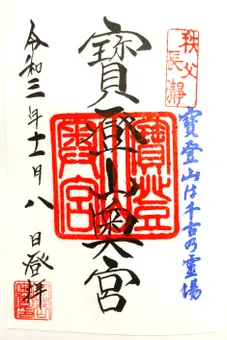 秩父
長瀞
寳登山は千古乃霊場
寳登山奥宮
寳登山
奥宮
令和三年十一月八日登拝